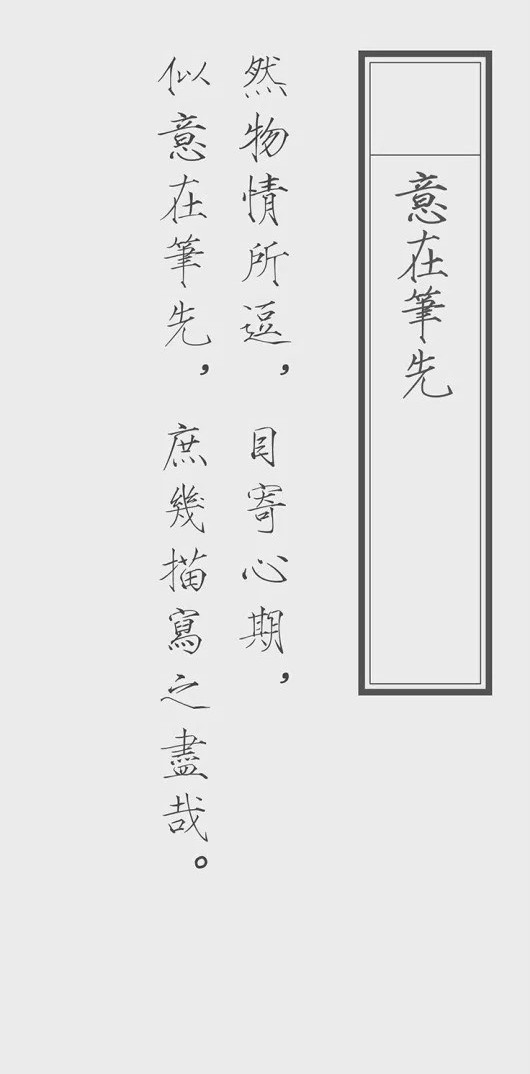 意在筆先
然物情所逗，目寄心期，
似意在筆先，庶幾描寫之盡哉。